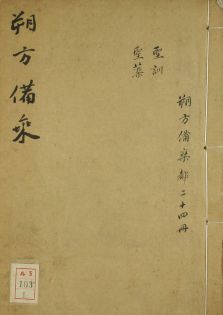 朔方備乘都二十四冊
聖訓
聖藻
朔方備乘
103
1